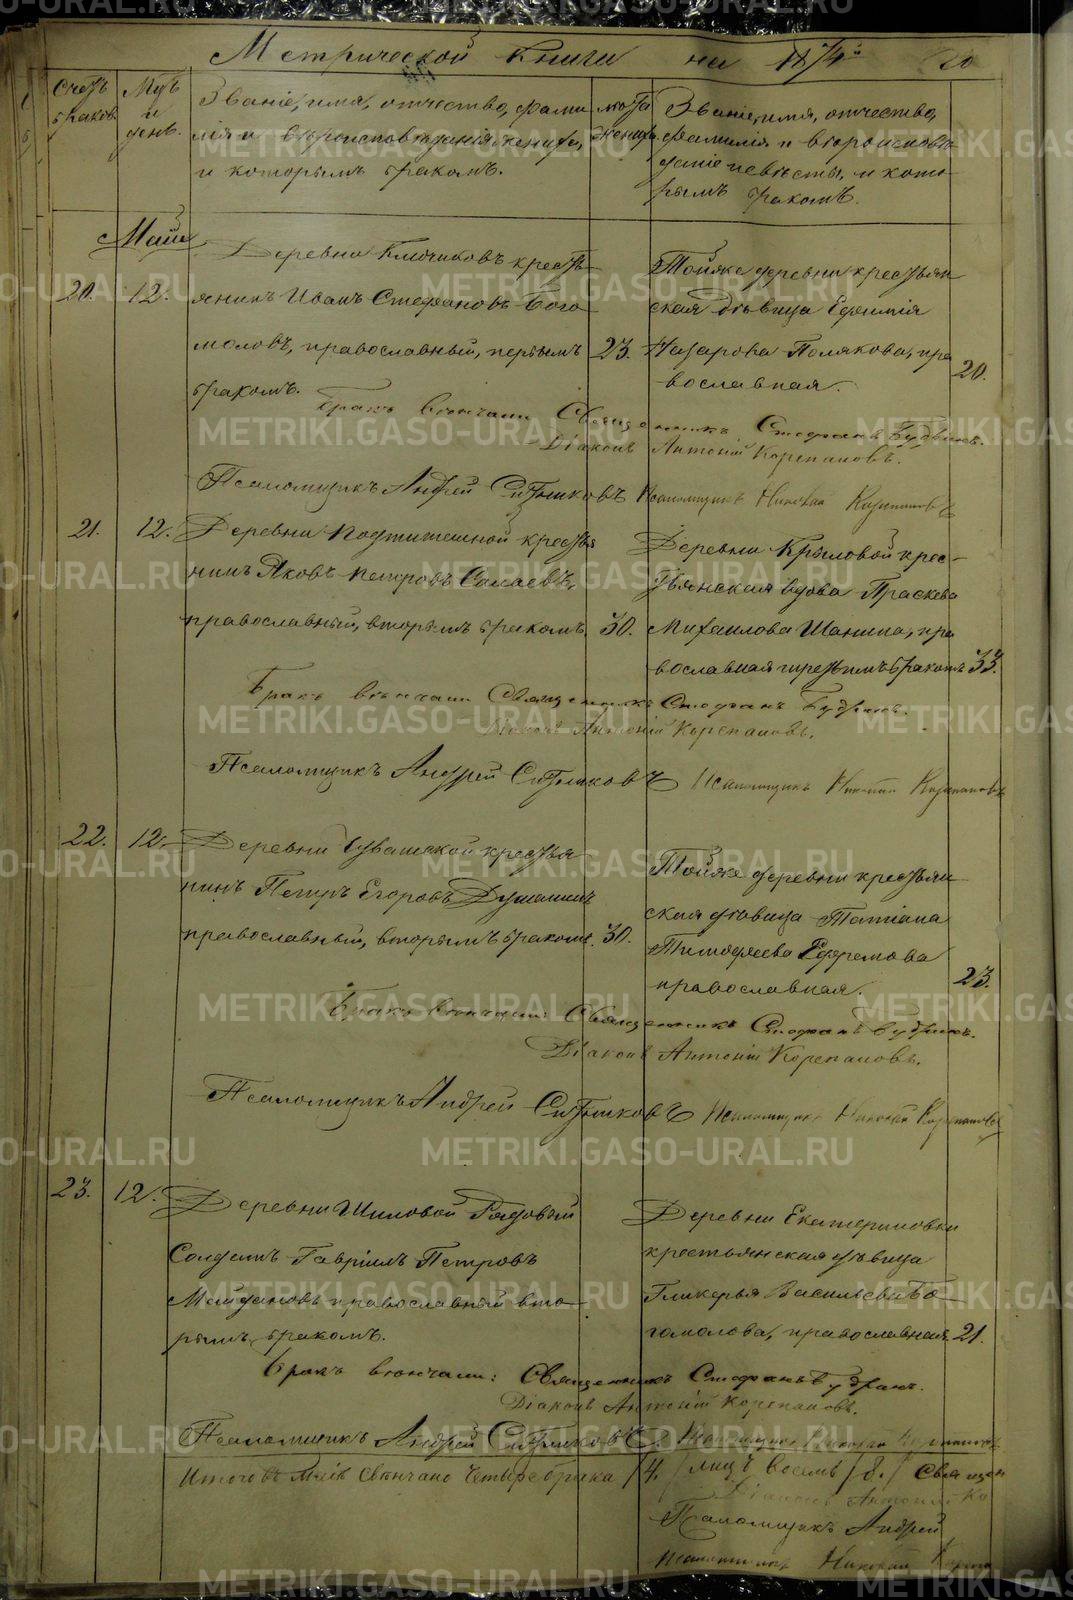 Метрической книги на 1874й
20
Счетъ браков.
Мцъ и день.
Званіе, имя, отчество, фами-
лія и вероисповеданія жениха,
и которымъ бракомъ.
лѣта жениха
Званіе, имя, отчество,
фамилія и вероиспове-
даніе невѣсты, и кото-
рымъ бракомъ.
Маій
20. 12.
Деревни Ключиковъ кресть-
янинъ Иванъ Стефановъ Бого-
моловъ, православный, первымъ
бракомъ.
23.
Тойже деревни крестьян-
ская дѣвица Ефимія
Назарова Полякова, пра-
вославная.
20.
Бракъ вѣнчали Священникъ Стефанъ Будринъ.
Діаконъ Антоній Корепановъ.
Псаломщикъ Андрей Ситниковъ Псаломщикъ Николай
21. 12.
Деревни крестья-
нинъ Яковъ Петровъ
православный, вторымъ бракомъ,
30.
Деревни Крыловой крес-
тьянская вдова Праскева
Михаилова Шанина, пра-
вославная третьимъ бракомъ
33.
Бракъ вѣнчали Священникъ Стефанъ Будринъ.
Діаконъ Антоній Корепановъ.
Псаломщикъ Андрей Ситниковъ Псаломщикъ Николай
22. 12.
Деревни Чувашской крестья-
нинъ Петръ Егоровъ
православный, вторымъ бракомъ.
30.
Тойже деревни крестьян-
ская дѣвица Татіана
Тимофеева Ефремова
православная.
23.
Бракъ вѣнчали: Священникъ Стефанъ Будринъ.
Діаконъ Антоній Корепановъ.
Псаломщикъ Андрей Ситниковъ Псаломщикъ Николай
23. 12.
Деревни Шиловой Рядовый
Солдатъ Гавріилъ Петровъ
православный вто-
рымъ бракомъ.
Деревни Екатериновки
крестьянская дѣвица
Гликерья Васильева Бо-
гомолова, православная
21.
Бракъ вѣнчали: Священникъ Стефанъ Будринъ.
Діаконъ Антоній Корепановъ.
Псаломщикъ Андрей Ситниковъ Псаломщикъ Николай
Итого въ Маіѣ свѣнчано четыре брака /4./ лицъ восемь /8./ Священ
Діаконъ Антоній Ко
Псаломщикъ Андрей
Псаломщикъ Николай
METRIKI.GASO-URAL.RU